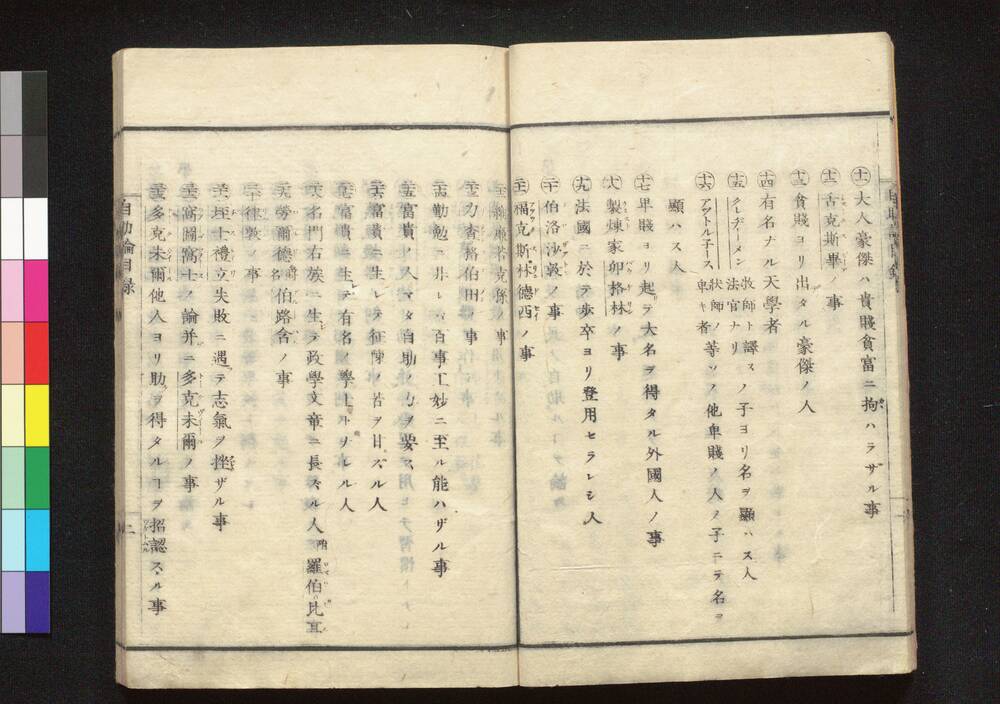 十一 大人豪傑ハ貴賤貧富ニ拘ハラザル事
十二 舌克斯畢ノ事
十三 貧賤ヨリ出タル豪傑ノ人
十四 有名ナル天學者
十五 クレヂーメン 牧師ト譯ス 法官ナリ ノ子ヨリ名ヲ顯ハス人
十六 アットル子ース 狀師ノ 卑キ者 等ソノ他卑賤ノ人ノ子ニテ名ヲ
顯ハス人
十七 卑賤ヨリ起テ大名ヲ得タル外國人ノ事
十八 製煉家卯格林ノ事
十九 法國ニ於テ歩卒ヨリ登用セラレシ人
二十 伯洛沙敦ノ事
二十一 福克斯 林德西ノ事
二十三 力查格伯田ノ事
二十四 勤勉ニ非レバ百事工妙ニ至ル能ハザル事
二十五 富貴ノ人モマタ自助ノ力ヲ要ス
二十六 富貴ニ生レテ征陣ノ苦ヲ甘ズル人
二十七 富貴ニ生レテ有名ノ學士トナレル人
二十八 名門右族ニ生テ政學文章ニ長ズル人 附 羅伯比亞
二十九 勞爾德 伯路舍ノ事
三十 律敦ノ事
禮立失敗ニ遇テ志氣ヲ挫ザル事
窩士ノ論并ニ多克未爾ノ事
三十三 多克未爾他人ヨリ助ヲ得タルヿヲ招認スル事
自助論目録
二